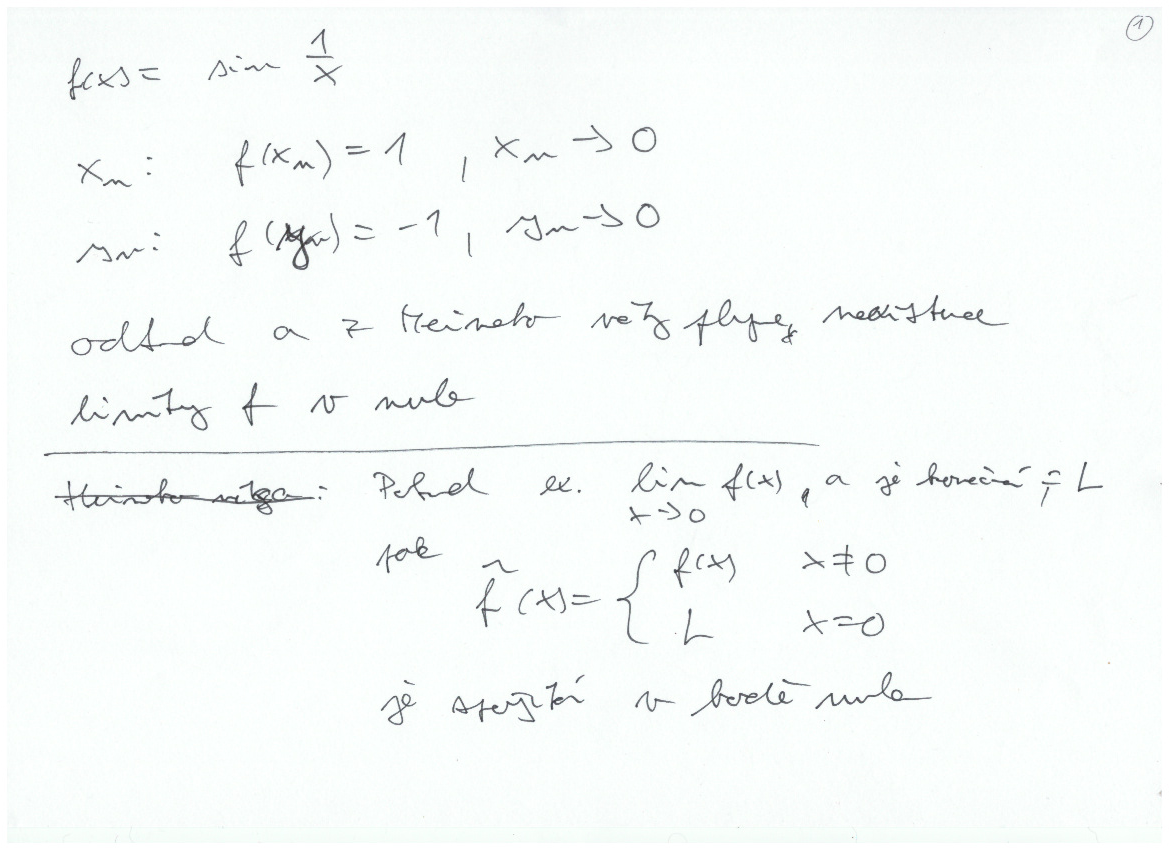 ①
f(x) = sin 1/x
x_n: f(x_n) = 1, x_n → 0
y_n: f(y_n) = -1, y_n → 0
odtud a z Heineho věty plyne, neexistence
limity f v nule
Heineho věta: Pokud ex. lim_{x→0} f(x), a je konečná, = L
tak
f̃(x) = { f(x) x ≠ 0
L x = 0
je spojitá v bodě nula